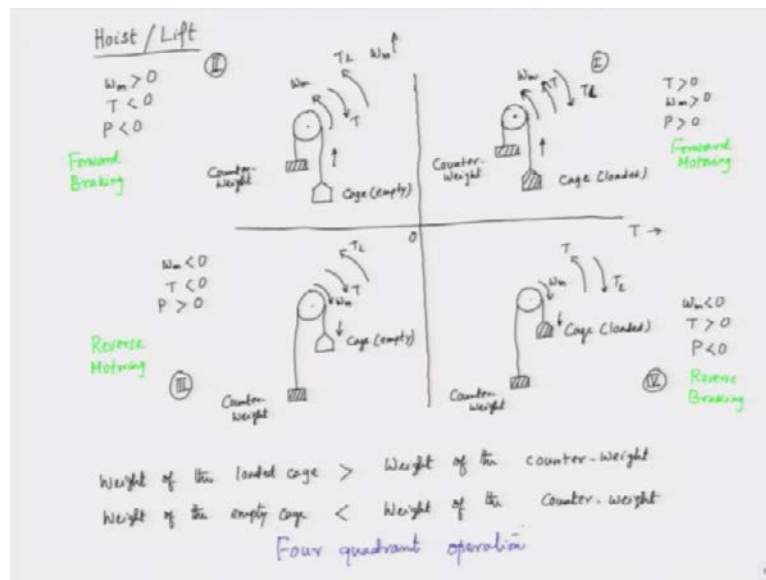 Hoist / Lift
II
ωm > 0
T < 0
P < 0
Forward
Braking
ωm
TL
T
Counter-
Weight
Cage (empty)
ωm
I
ωm
T
TL
Counter-
Weight
Cage (loaded)
T > 0
ωm > 0
P > 0
Forward
Motoring
0
T →
ωm < 0
T < 0
P > 0
Reverse
Motoring
III
TL
T
ωm
Cage (empty)
Counter-
Weight
T
TL
ωm
Cage (loaded)
Counter-
Weight
ωm < 0
T > 0
P < 0
IV
Reverse
Braking
Weight of the loaded cage > Weight of the counter-weight
Weight of the empty cage < Weight of the Counter-weight
Four quadrant operation